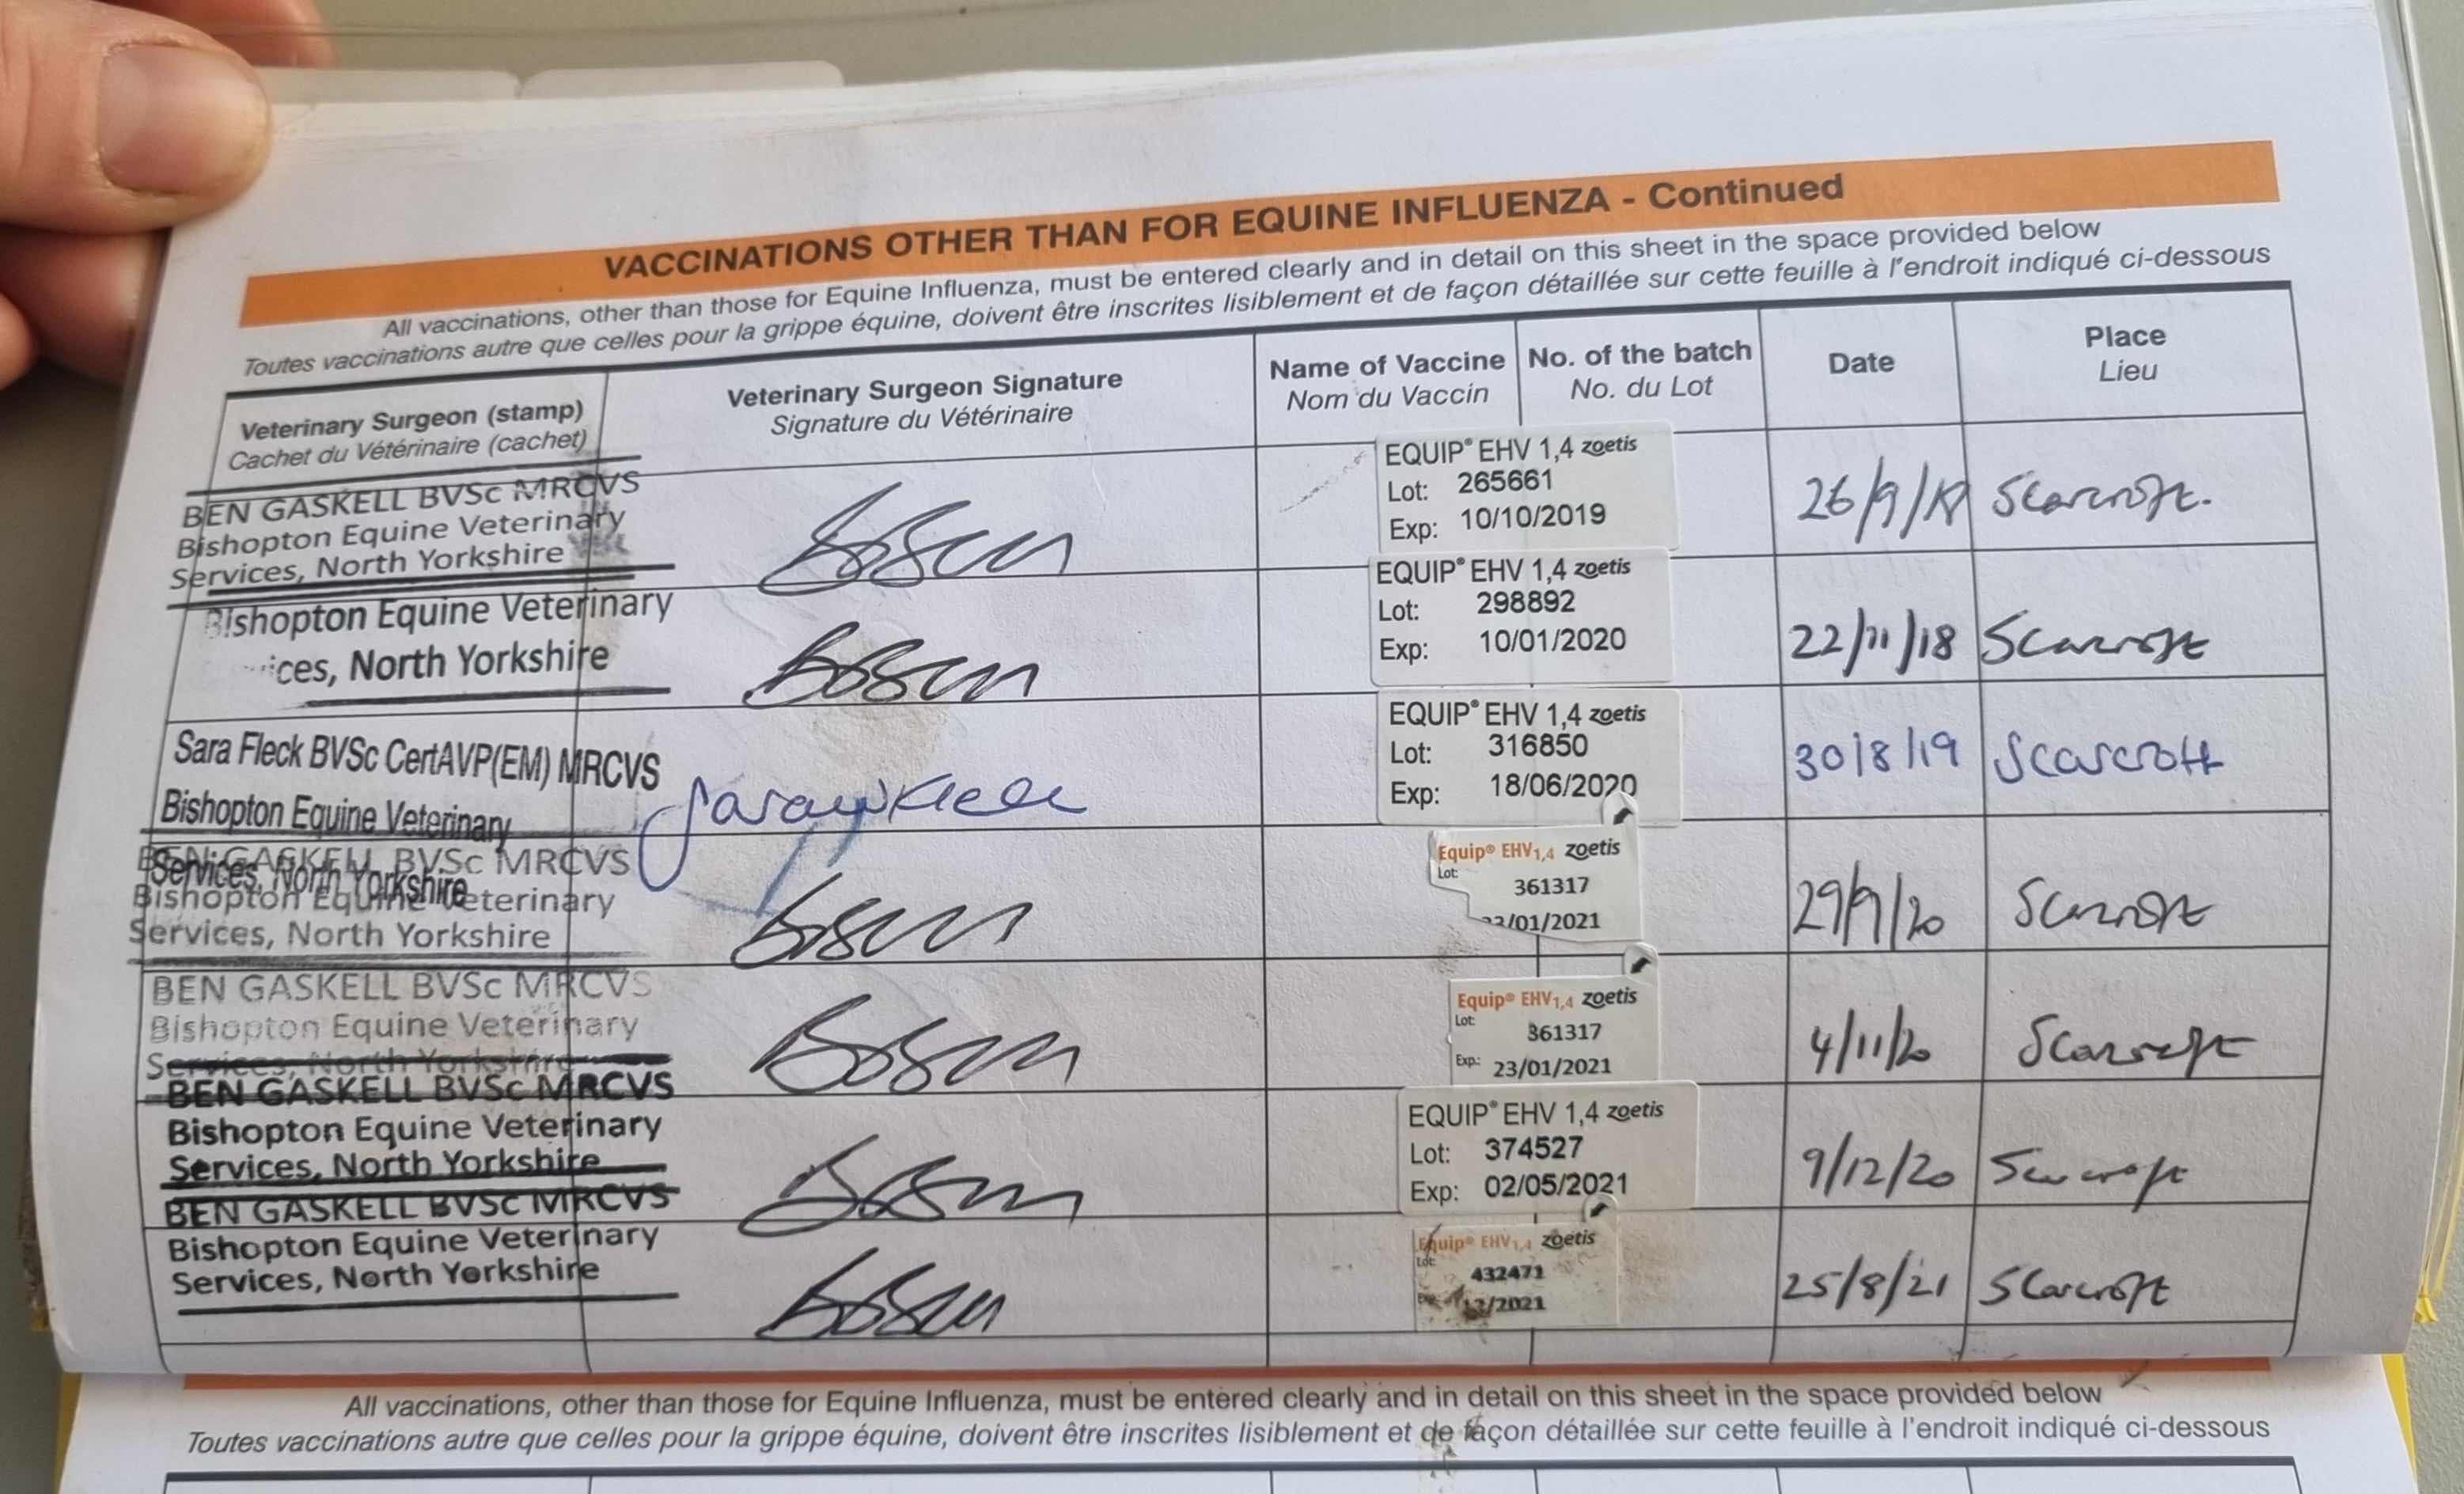 VACCINATIONS OTHER THAN FOR EQUINE INFLUENZA - Continued
All vaccinations, other than those for Equine Influenza, must be entered clearly and in detail on this sheet in the space provided below
Toutes vaccinations autre que celles pour la grippe équine, doivent être inscrites lisiblement et de façon détaillée sur cette feuille à l'endroit indiqué ci-dessous
Veterinary Surgeon (stamp)
Cachet du Vétérinaire (cachet)
Veterinary Surgeon Signature
Signature du Vétérinaire
Name of Vaccine
Nom du Vaccin
No. of the batch
No. du Lot
Date
Place
Lieu
BEN GASKELL BVSc MRCVS
Bishopton Equine Veterinary
Services, North Yorkshire
EQUIP® EHV 1,4 zoetis
Lot: 265661
Exp: 10/10/2019
26/9/18
Scarcroft.
Bishopton Equine Veterinary
ices, North Yorkshire
EQUIP® EHV 1,4 zoetis
Lot: 298892
Exp: 10/01/2020
22/11/18
Scarcroft
Sara Fleck BVSc CertAVP(EM) MRCVS
Bishopton Equine Veterinary
Services, North Yorkshire
EQUIP® EHV 1,4 zoetis
Lot: 316850
Exp: 18/06/2020
30/8/19
Scarcroft
BEN GASKELL BVSc MRCVS
Bishopton Equine Veterinary
Services, North Yorkshire
Equip® EHV1,4 zoetis
Lot: 361317
/01/2021
29/9/20
Scarcroft
BEN GASKELL BVSc MRCVS
Bishopton Equine Veterinary
Services, North Yorkshire
Equip® EHV1,4 zoetis
Lot: 361317
Exp.: 23/01/2021
4/11/20
Scarcroft
BEN GASKELL BVSc MRCVS
Bishopton Equine Veterinary
Services, North Yorkshire
EQUIP® EHV 1,4 zoetis
Lot: 374527
Exp: 02/05/2021
9/12/20
Scarcroft
BEN GASKELL BVSc MRCVS
Bishopton Equine Veterinary
Services, North Yorkshire
Equip® EHV1,4 zoetis
Lot: 432471
12/2021
25/8/21
Scarcroft
All vaccinations, other than those for Equine Influenza, must be entered clearly and in detail on this sheet in the space provided below
Toutes vaccinations autre que celles pour la grippe équine, doivent être inscrites lisiblement et de façon détaillée sur cette feuille à l'endroit indiqué ci-dessous